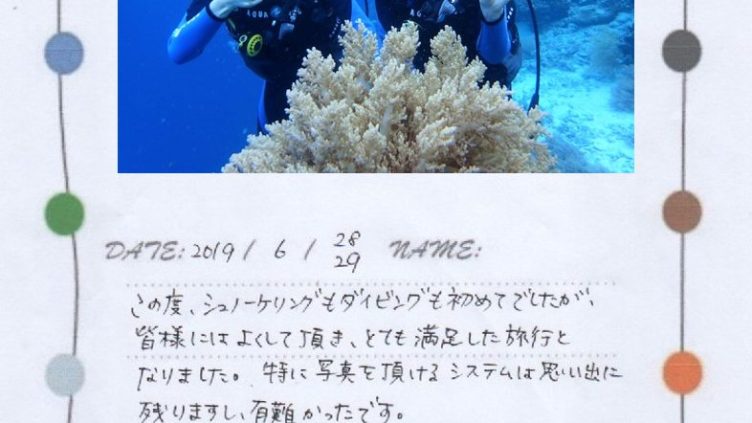 AQUA
DATE: 2019 / 6 / 28
29
NAME:
この度、シュノーケリングもダイビングも初めてでしたが、
皆様にはよくして頂き、とても満足した旅行と
なりました。特に写真を頂けるシステムは思い出に
残りますし、有難かったです。